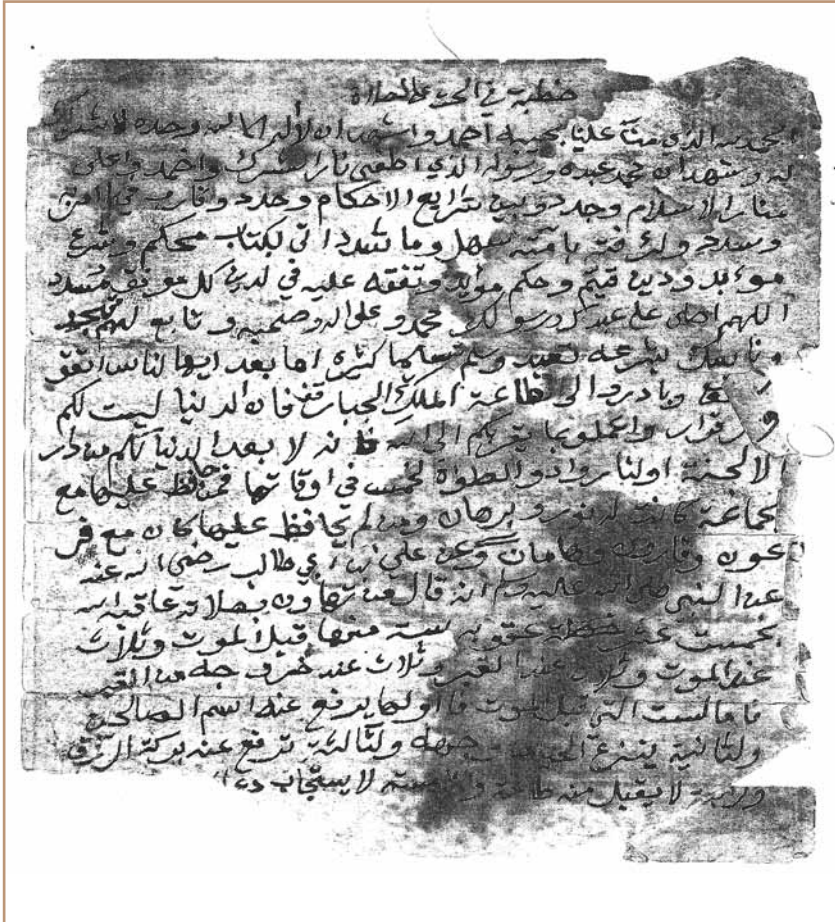 خطبة في الحث على الصلاة
الحمد لله الذي منّا علينا احمد واشهد ان لا اله الا الله وحده لا شريك
له وشهد ان محمد عبده ورسوله الذي اطفى نار الشرك واخمد واعلى
منار الاسلام وجدد وبين شرايع الاحكام وحدد وقارب في امره
وسدد سهل وما شدد اتى بكتاب محكم وشرع
موءبد ودين قيم وحكم مؤيد وتفقه عليه في لدين كل موفق مسدد
اللهم اصلى على عبدك ورسولك محمد وعلى اله وصحبه وتابع لهم
وسلم تسليما كثيره اما بعد ايها لناس اتقو
وبادرو الى طاعة الملك الجبار فان الدنيا ليست لكم
قرار واعملو بما يقربكم الى الله فا نه لا بعد الدنيا لكم من دار
الا لجنة اولنار والصلواة لخمس في اوقاتها فمن حافظ عليها مع
بجماعة كانت له نور وبرهان ومن لم يحافظ عليها كان مع فر
عون وقارون وهامان وعن علي ابن ابي طالب رضى الله عنه
عن النبي صلى الله عليه وسلم انه قال من تهاون بصلاته عاقبه الله
بخمست عشر عقوبه ستة منها قبل الموت وثلاث
عند الموت وثلاث عند القبر وثلاث عند خروجه من القبر
فاما لست التي قبل الموت فا اولها يرفع عنه اسم الصالحين
ولثانية ينزع وجهه ولثالثة ترفع عنه بركة الرزق
لا يقبل منه لا يستجاب